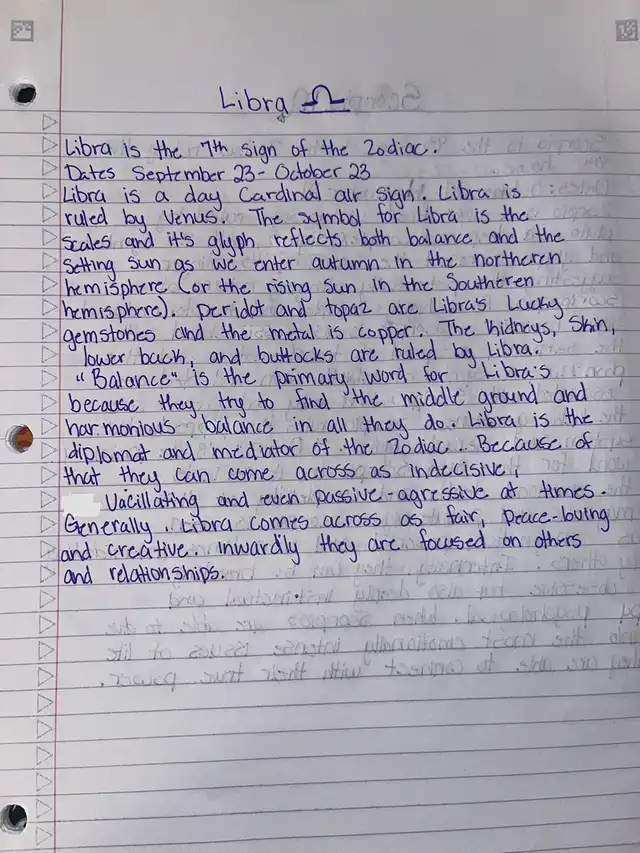 Libra ♎
Libra is the 7th sign of the Zodiac.
Dates September 23 - October 23
Libra is a day Cardinal air sign. Libra is
ruled by Venus. The symbol for Libra is the
scales and it's glyph reflects both balance and the
setting sun as we enter autumn in the northeren
hemisphere (or the rising sun in the Southeren
hemisphere). Peridot and topaz are Libra's Lucky
gemstones and the metal is copper. The Kidneys, Skin,
lower back, and buttocks are ruled by Libra.
"Balance" is the primary word for Libra's
because they try to find the middle ground and
harmonious balance in all they do. Libra is the
diplomat and mediator of the Zodiac. Because of
that they can come across as indecisive,
Vacillating and even passive-agressive at times.
Generally, Libra comes across as fair, peace-loving
and creative. Inwardly they are focused on others
and relationships.